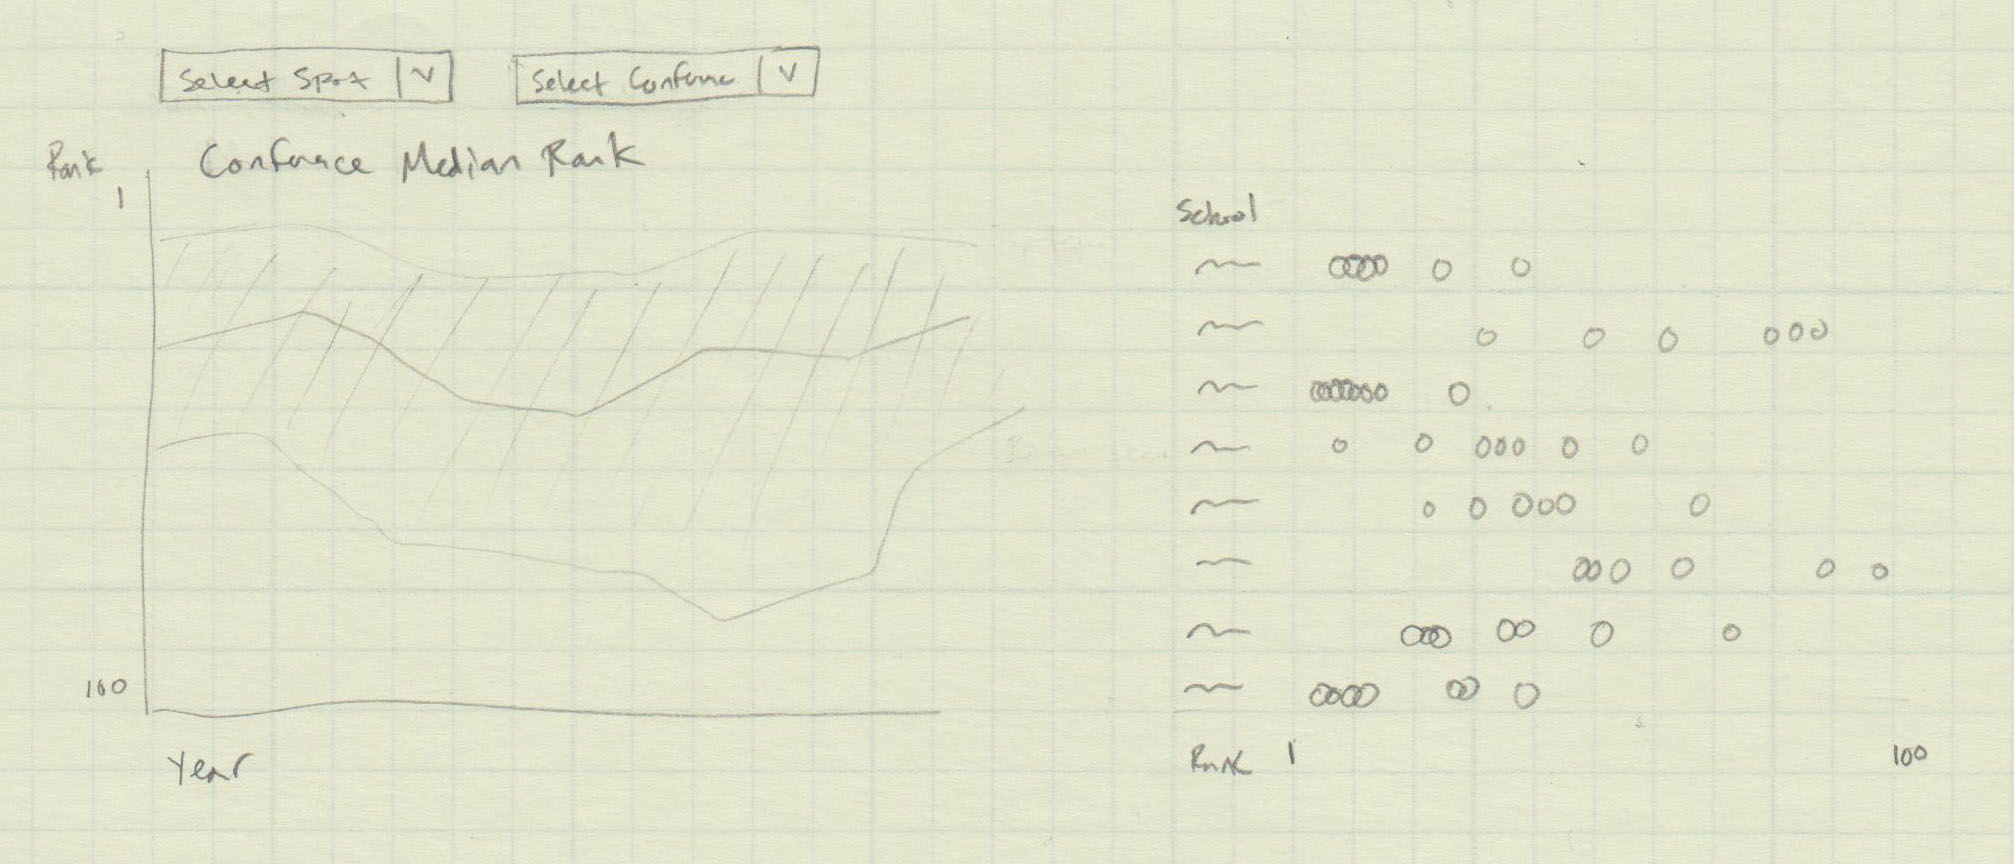 Select Sport V
Select Conference V
Rank
Conference Median Rank
1
100
Year
School
Rank 1 100